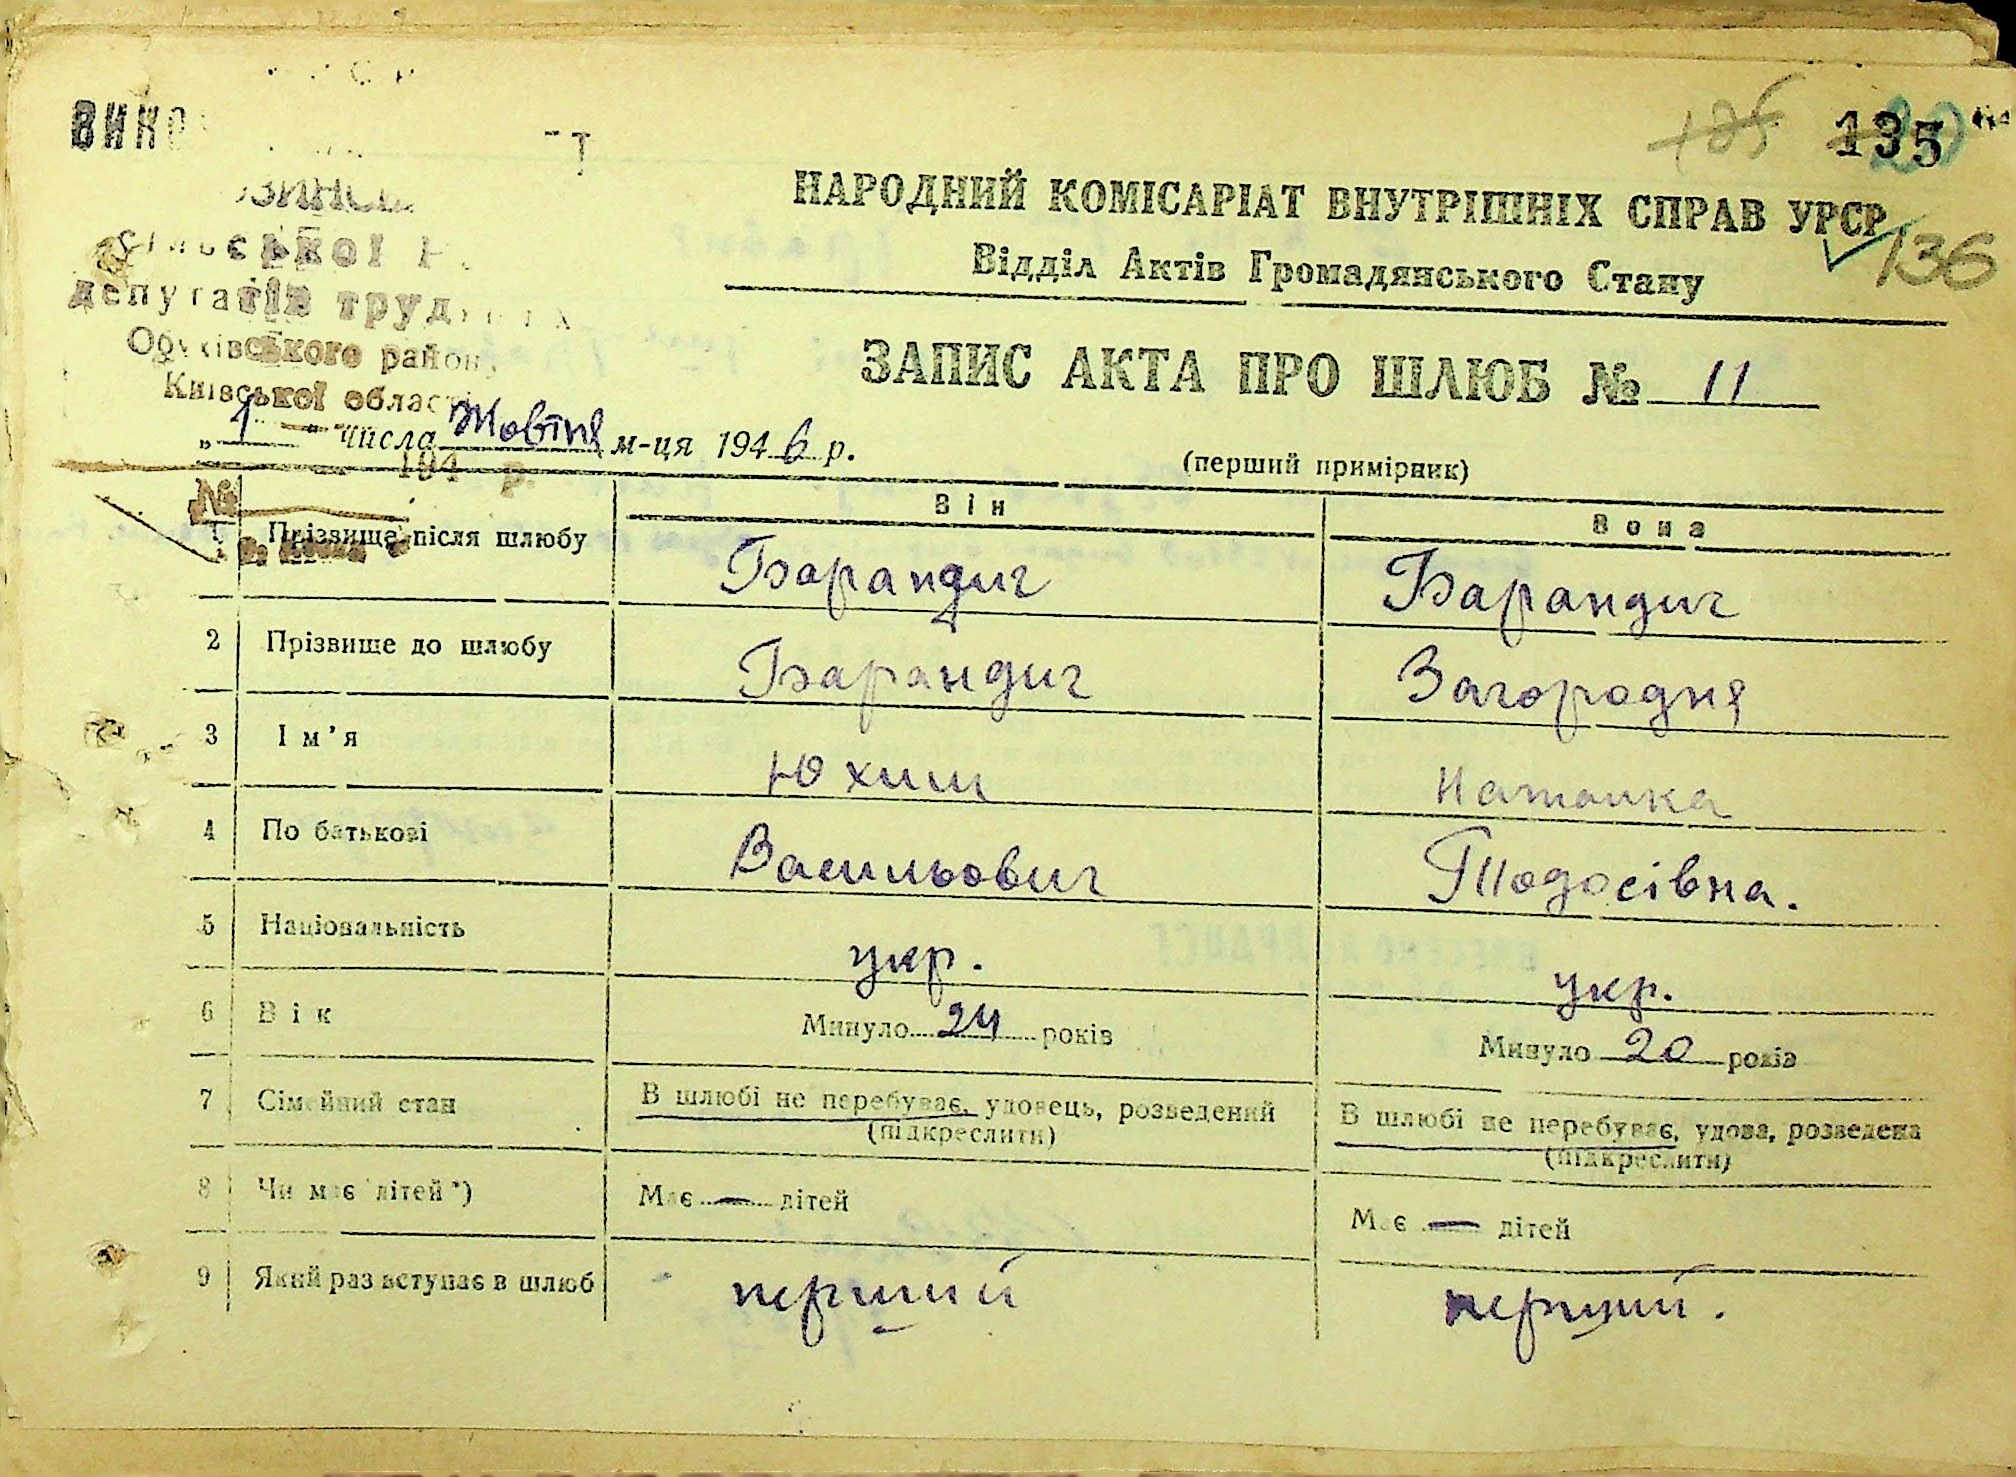 135
НАРОДНИЙ КОМІСАРІАТ ВНУТРІШНІХ СПРАВ УРСР
136
Відділ Актів Громадянського Стану
депутатів
Обухівського району
Київської області
ЗАПИС АКТА ПРО ШЛЮБ № 11
„ 1 " числа Жовтня м-ця 194 6 р.
194 р.
(перший примірник)
№
Він
Вона
1 Прізвище після шлюбу Барандич Барандич
2 Прізвище до шлюбу Барандич Загородня
3 Ім'я Юхим Наталка
4 По батькові Васильович Тодосівна.
5 Національність укр. укр.
6 Вік Минуло 24 років Минуло 20 років
7 Сімейний стан В шлюбі не перебуває, удовець, розведений В шлюбі не перебуває, удова, розведена
(підкреслити) (підкреслити)
8 Чи має дітей*) Має — дітей Має — дітей
9 Який раз вступає в шлюб перший перший.